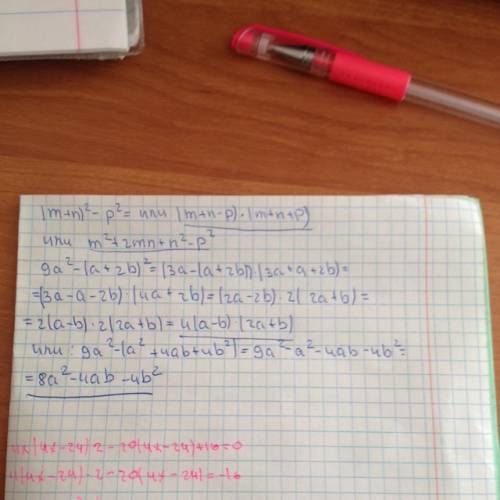 (m+n)²-p²= или (m+n-p)·(m+n+p)
или m²+2mn+n²-p²
9a²-(a+2b)²=(3a-(a+2b))·(3a+a+2b)=
=(3a-a-2b)·(4a+2b)=(2a-2b)·2(2a+b)=
=2(a-b)·2(2a+b)=4(a-b)(2a+b)
или: 9a²-(a²+4ab+4b²)=9a²-a²-4ab-4b²=
=8a²-4ab-4b²
4x(4x-24)·2-20(4x-24)+16=0
(4x-24)·2-20(4x-24)=-16